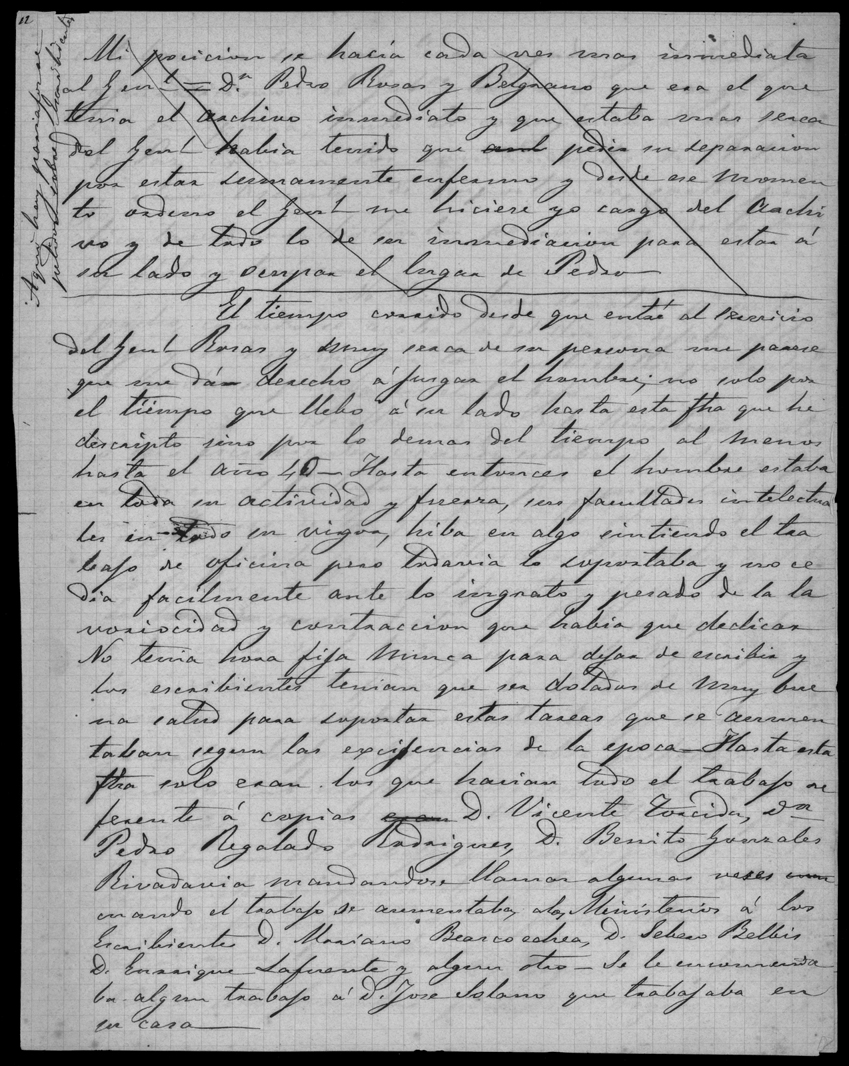 12
Aqui hay que
Mi posicion se hacía cada ves mas inmediata
al Genl = Dn. Pedro Rosas y Belgrano que era el que
tenia el archivo inmediato y que estaba mas serca
del Genl habia tenido que pedir su separacion
por estar sumamente enfermo y desde ese momen
to ordeno el Genl me hiciere yo cargo del Archi
vo y de todo lo de su inmediacion para estar á
su lado y ocupar el lugar de Pedro—
El tiempo corrido desde que entré al servicio
del Genl Rosas y muy serca de su persona me parese
que me dá derecho á jusgar el hombre; no solo por
el tiempo que llebo á su lado hasta esta fha que he
descripto sino por lo demas del tiempo al menos
hasta el año 40— Hasta entonces el hombre estaba
en toda su actividad y fuerza, sus facultades intelectua
les en todo su vigor, hiba en algo sintiendo el tra
bajo de oficina pero todavia lo soportaba y no ce
dia facilmente ante lo ingrato y pesado de la la
voriocidad y contraccion que habia que dedicar
No tenia hora fija nunca para dejar de escribir y
los escribientes tenian que ser dotados de muy bue
na salud para soportar estas tareas que se aumen
taban segun las exijencias de la epoca— Hasta esta
fha solo eran los que hacian todo el trabajo re
ferente á copias eran D. Vicente Torcida, Dn
Pedro Regalado Rodrigues, D. Benito Gonzales
Rivadavia mandandose llamar algunas veses
cuando el trabajo se aumentaba, a los Ministerios á los
Escribientes D. Mariano Beascoechea, D. Sebero Belbis
D. Enrrique Lafuente y algun otro— Se le encomenda
ba algun trabajo á D. Jose Solano que trabajaba en
su casa—